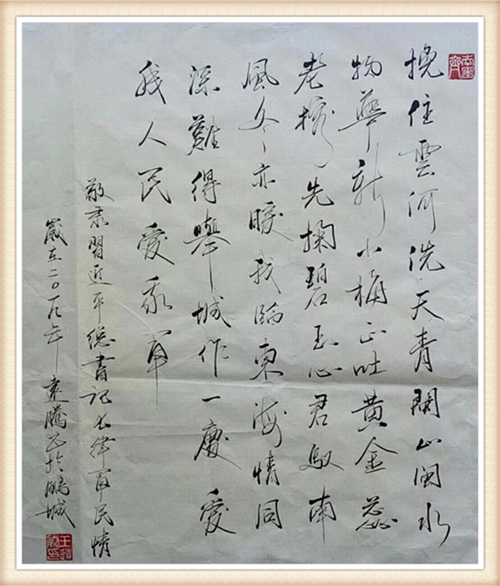 挽住雲河洗天青閩山閩水
物華新小梅正吐黄金蕊
老榕先掬碧玉心君馭南
風冬亦暖我臨東海情同
深難得舉城作一慶愛
我人民愛我軍
敬录習近平總書記七律軍民情
歲在二〇一九年遠騰書於鵬城